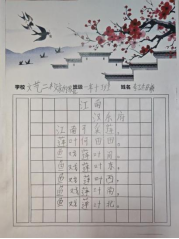 学校 班级 一年十 姓名
江南
汉乐府
江南可采莲，
莲叶何田田。
鱼戏莲叶间。
鱼戏莲叶东，
鱼戏莲叶西，
鱼戏莲叶南，
鱼戏莲叶北。